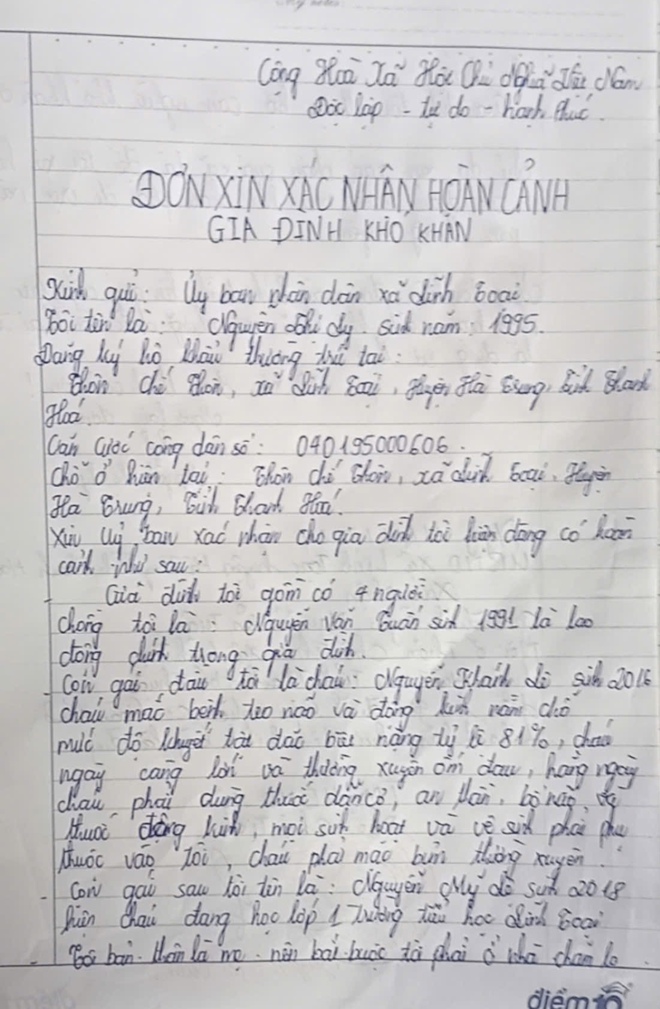 Cộng Hoà Xã Hội Chủ Nghĩa Việt Nam
Độc lập - tự do - hạnh phúc.
ĐƠN XIN XÁC NHẬN HOÀN CẢNH
GIA ĐÌNH KHÓ KHĂN
Kính gửi: Ủy ban nhân dân xã Lĩnh Toại.
Tôi tên là: Nguyễn Thị Ly sinh năm: 1995.
Đăng ký hộ khẩu thường trú tại:
Thôn Thôn, xã Lĩnh Toại, Huyện Hà Trung, tỉnh Thanh
Hoá.
Căn cước công dân số: 040195000606.
Chỗ ở hiện tại: Thôn Thôn, xã Lĩnh Toại, Huyện
Hà Trung, Tỉnh Thanh Hoá.
Xin Uỷ ban xác nhận cho gia đình tôi hiện đang có hoàn
cảnh như sau:
- Gia đình tôi gồm có 4 người
chồng tôi là: Nguyễn Văn Tuấn sinh 1991 là lao
động chính trong gia đình.
- Con gái đầu tôi là cháu: Nguyễn Khánh sinh 2016
cháu mắc bệnh teo não và động kinh nằm chỗ
mức độ khuyết tật đặc biệt nặng tỷ lệ 81%, cháu
ngày càng lớn và thường xuyên ốm đau, hàng ngày
cháu phải dùng thuốc dãn cơ, an thần, bổ não, và
thuốc động kinh, mọi sinh hoạt và vệ sinh phải phụ
thuộc vào tôi, cháu phải mặc bỉm thường xuyên.
- Con gái sau tôi tên là: Nguyễn Mỹ sinh 2018
hiện cháu đang học lớp 1 trường tiểu học Lĩnh Toại
- Tôi bản thân là mẹ nên bắt buộc tôi phải ở nhà chăm lo
điểm 10